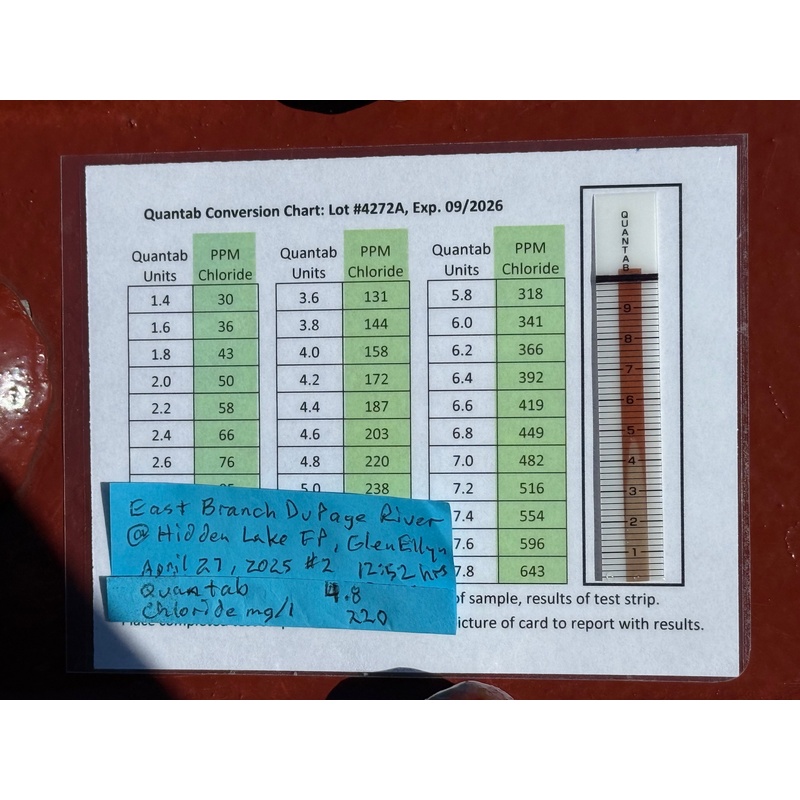 Quantab Conversion Chart: Lot #4272A, Exp. 09/2026
Quantab Units PPM Chloride Quantab Units PPM Chloride Quantab Units PPM Chloride
1.4 30 3.6 131 5.8 318
1.6 36 3.8 144 6.0 341
1.8 43 4.0 158 6.2 366
2.0 50 4.2 172 6.4 392
2.2 58 4.4 187 6.6 419
2.4 66 4.6 203 6.8 449
2.6 76 4.8 220 7.0 482
5.0 238 7.2 516
7.4 554
7.6 596
7.8 643
East Branch DuPage River
@ Hidden Lake FP, Glen Ellyn
April 27, 2025 #2 12:52 hrs
Quantab 4.8
Chloride mg/l 220
of sample, results of test strip.
picture of card to report with results.
QUANTAB
9
8
7
6
5
4
3
2
1